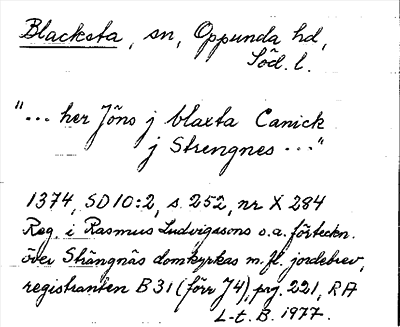 Blacksta, sn, Oppunda hd,
Söd. l.
"... her Jöns j blaxta Canick
j Strengnes ..."
1374, SD 10:2, s. 252, nr X 284
Reg. i Rasmus Ludvigssons s.a. förteckn.
över Strängnäs domkyrkas m.fl. jordebrev,
registranten B 31 (förr J 4), pag. 221, RA
L-t. B. 1977.